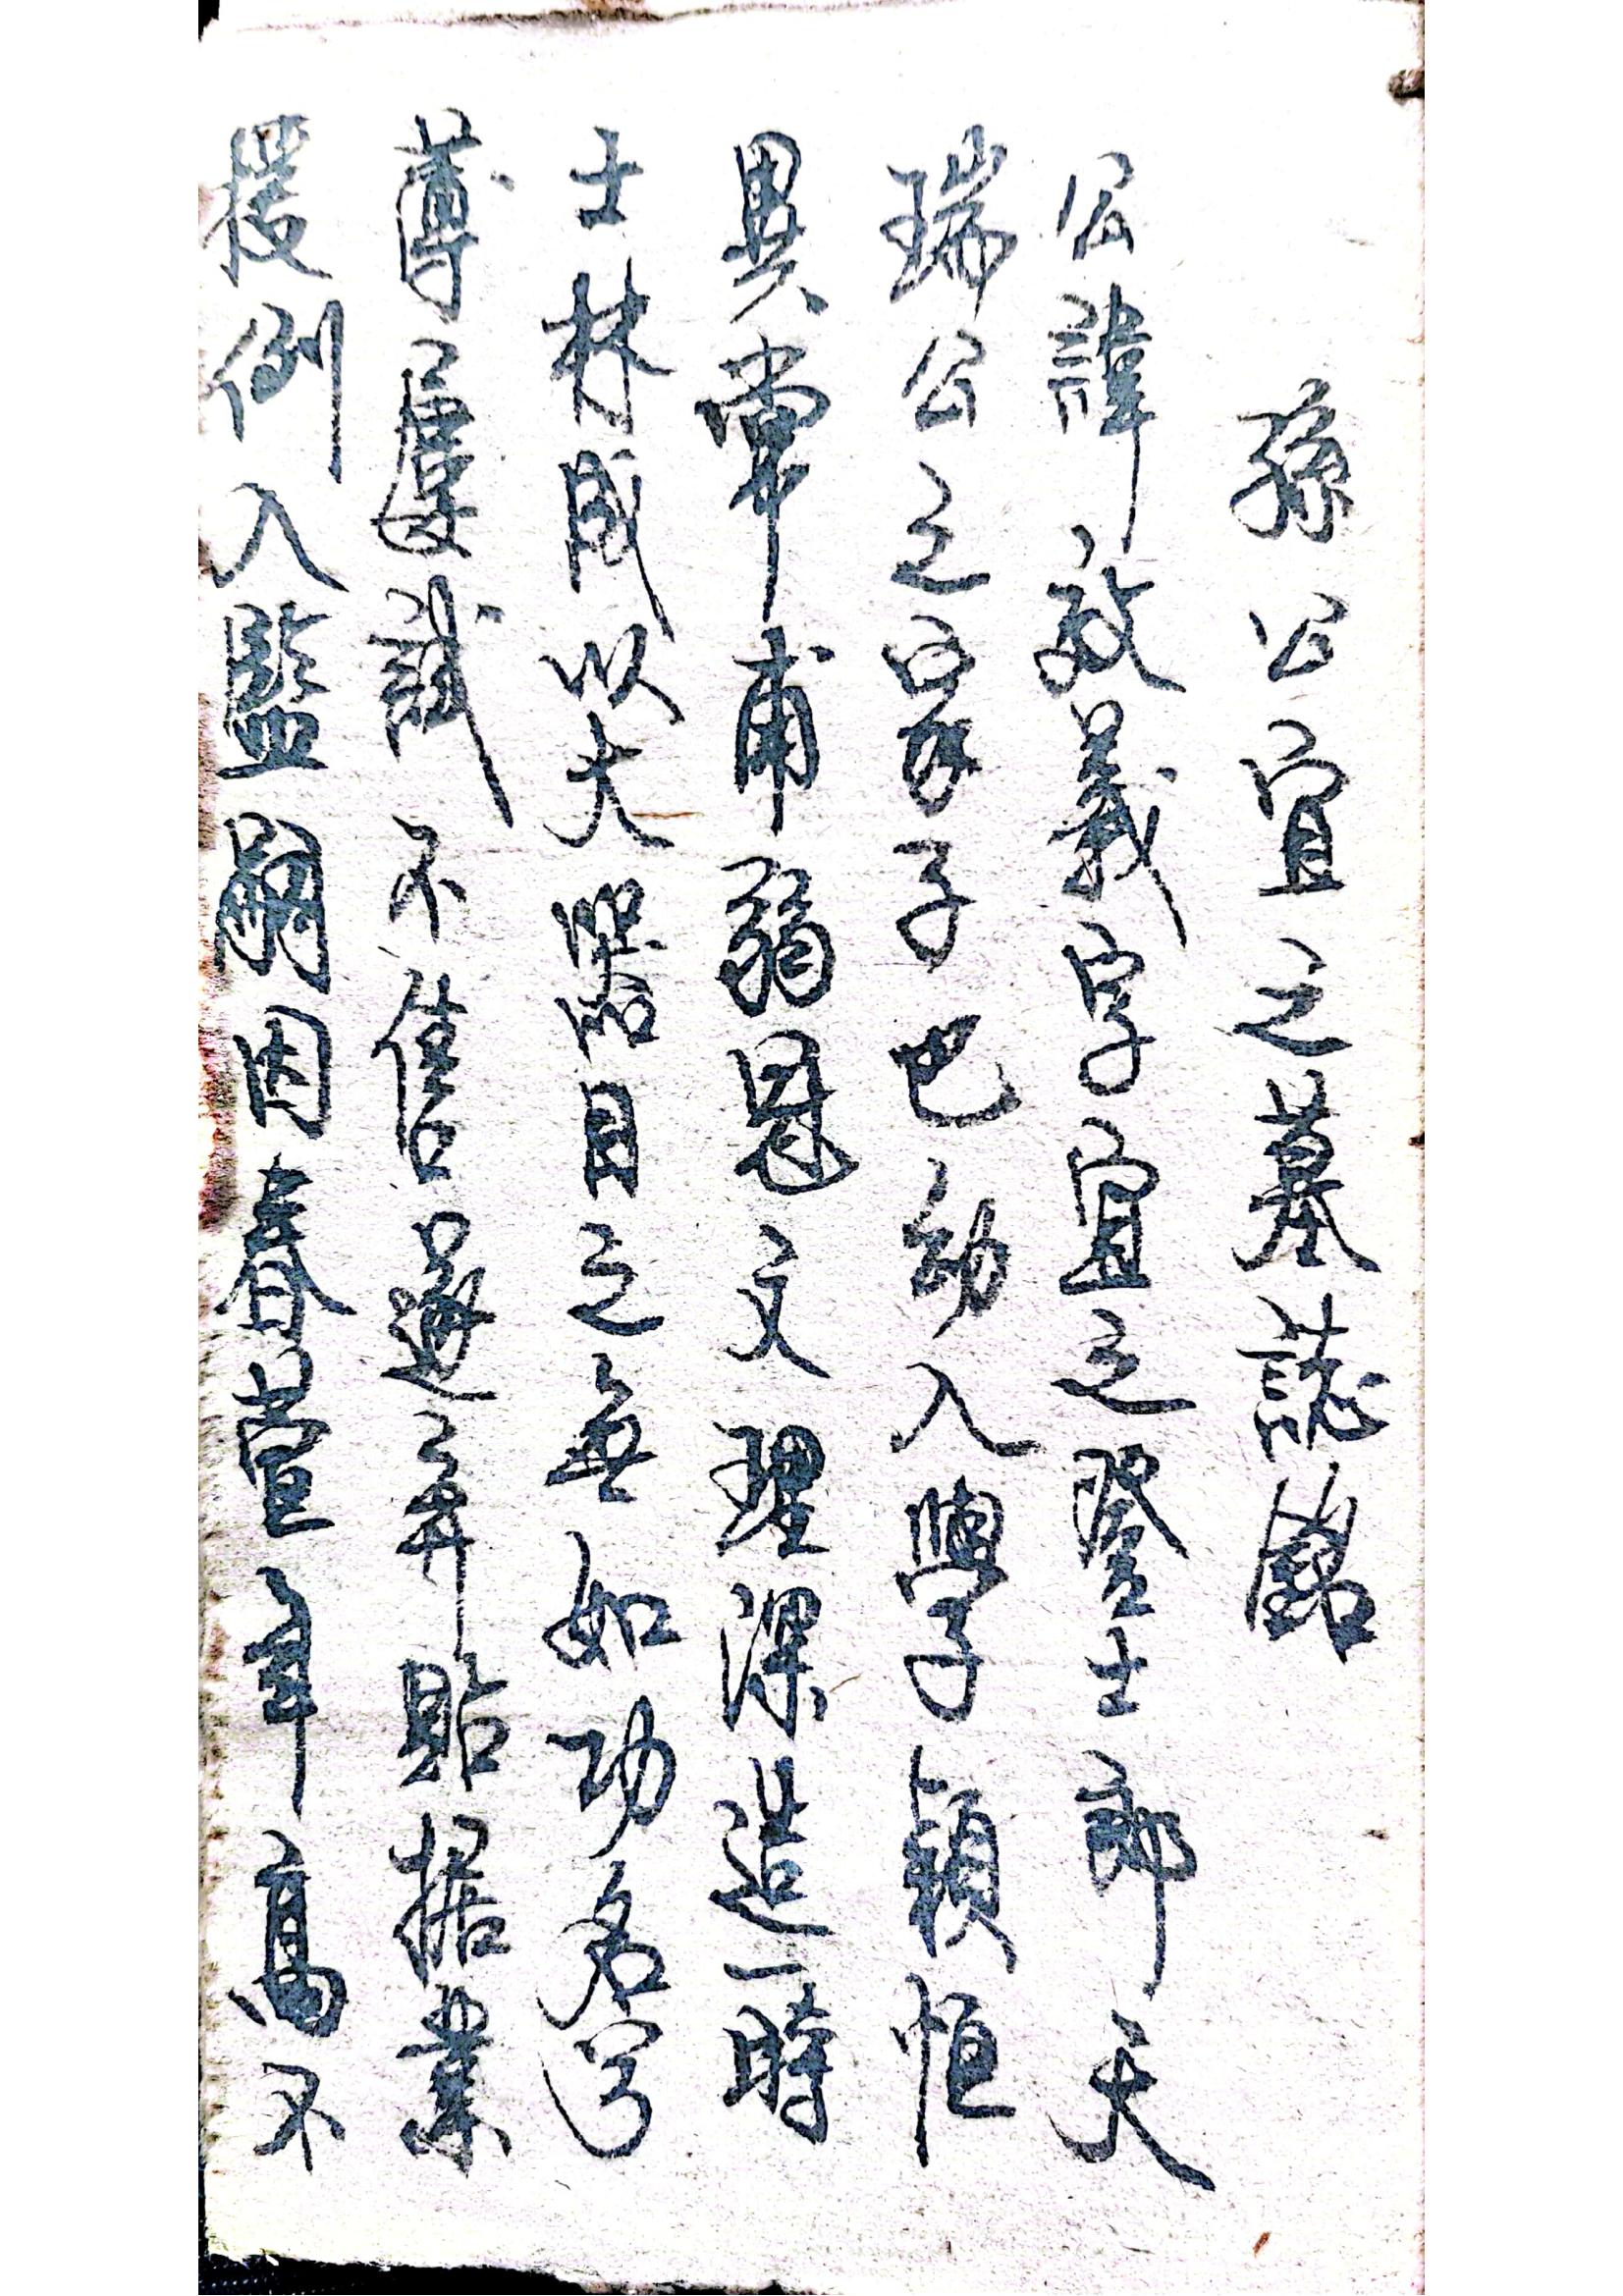 孫公宜之墓誌銘
公諱效義字宜之登士郎天
瑞公之冢子也幼入學穎悟
異常甫弱冠文理深造一時
士林咸以大器目之無如功名
薄屢試不售遂弃貼据業
援例入監嗣因春萱年高不